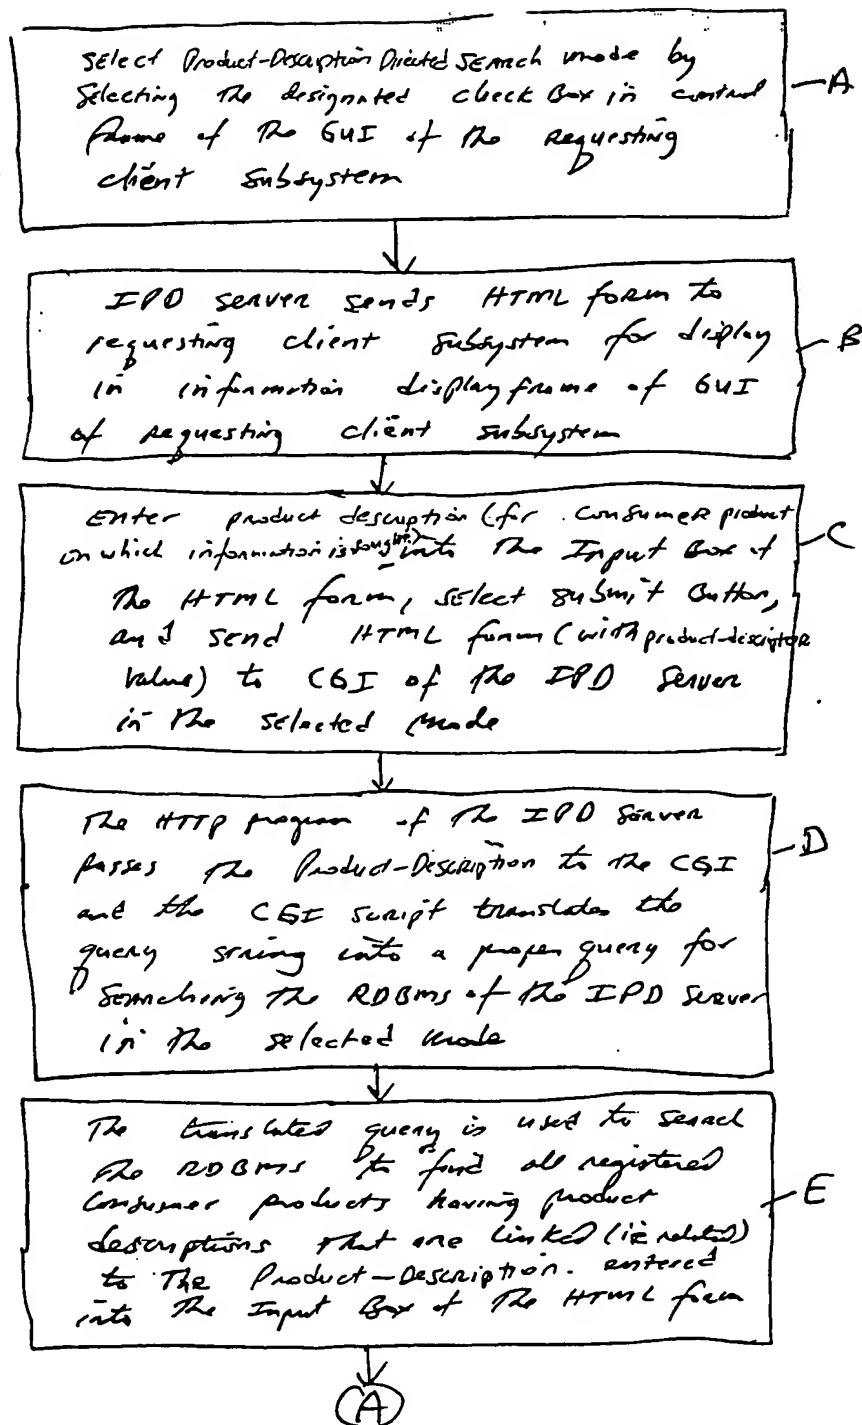 Select Product-Description Directed Search mode by
Selecting the designated check Box in control
frame of the GUI of the requesting
client subsystem
A
IPD server sends HTML form to
requesting client subsystem for display
in information display frame of GUI
of requesting client subsystem
B
Enter product description (for consumer product
on which information is sought) into the Input Box of
the HTML form, select submit Button,
and send HTML form (with product-descriptor
value) to CGI of the IPD Server
in the selected mode
C
The HTTP program of the IPD Server
passes the Product-Description to the CGI
and the CGI script translates the
query string into a proper query for
searching the RDBMS of the IPD Server
in the selected mode
D
The translated query is used to search
the RDBMS to find all registered
Consumer products having product
descriptions that are linked (ie related)
to The Product-Description. entered
into The Input Box of The HTML form
E
A